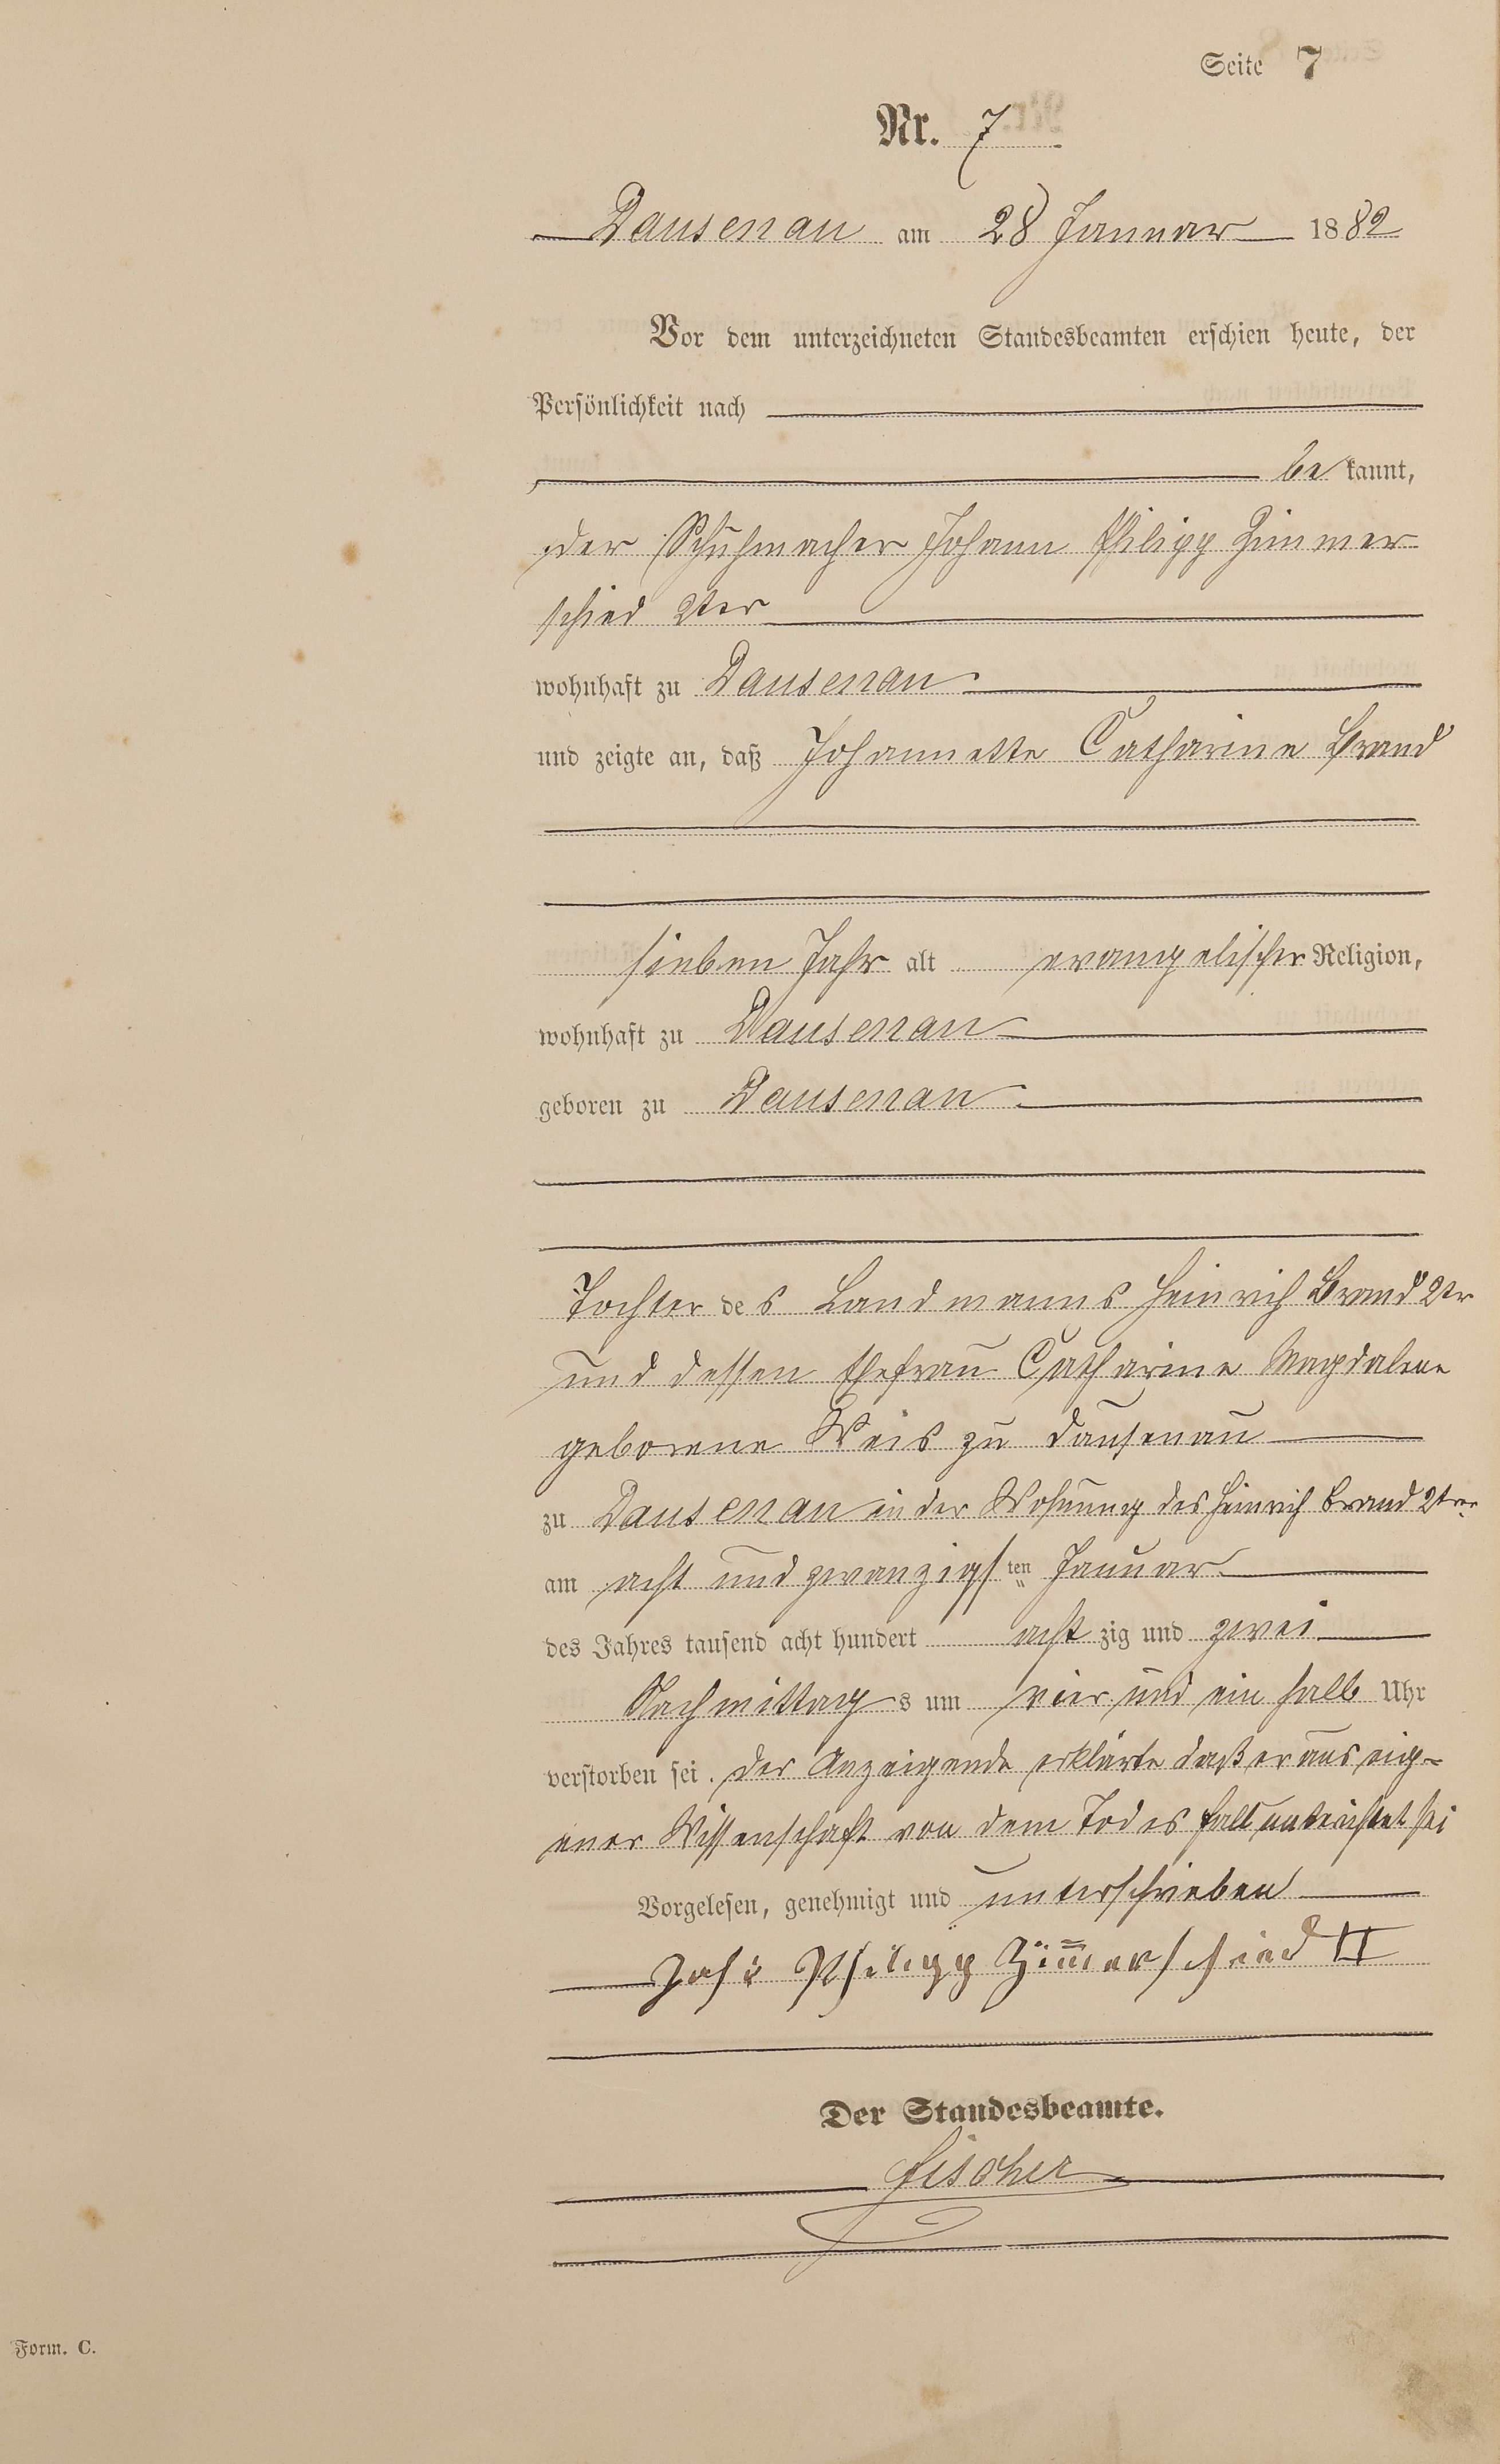 Seite 7
Nr. 7
Dausenau am 28 Januar 1882
Vor dem unterzeichneten Standesbeamten erschien heute, der
Persönlichkeit nach
be kannt,
der Schuhmacher Johann Philipp Zimmer
schied 2ter
wohnhaft zu Dausenau
und zeigte an, daß Johannette Catharine Brand
sieben Jahr alt evangelischer Religion,
wohnhaft zu Dausenau
geboren zu Dausenau
Tochter des Landmanns Heinrich Brand 2tr
und dessen Ehefrau Catharine Magdalene
geborene Weis zu Dausenau
zu Dausenau in der Wohnung des Heinrich Brand 2ter
am acht und zwanzigsten Januar
des Jahres tausend acht hundert acht zig und zwei
Nachmittags um vier und ein halb Uhr
verstorben sei. der Anzeigende erklärte daß er aus eig-
ener Wissenschaft von dem Todes fall unterichtet sei
Vorgelesen, genehmigt und unterschrieben
Joh: Philipp Zimmerschied II
Der Standesbeamte.
Fischer
Form. C.